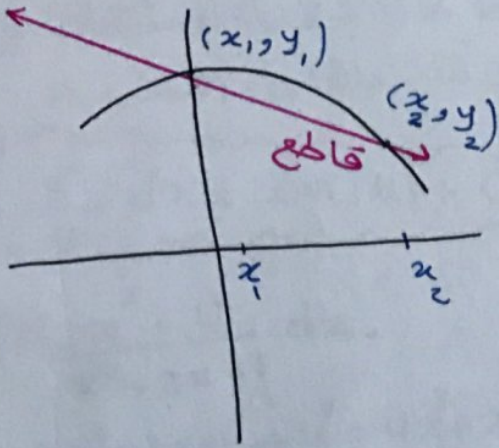 (x₁, y₁)
(x₂, y₂)
قاطع
x₁
x₂